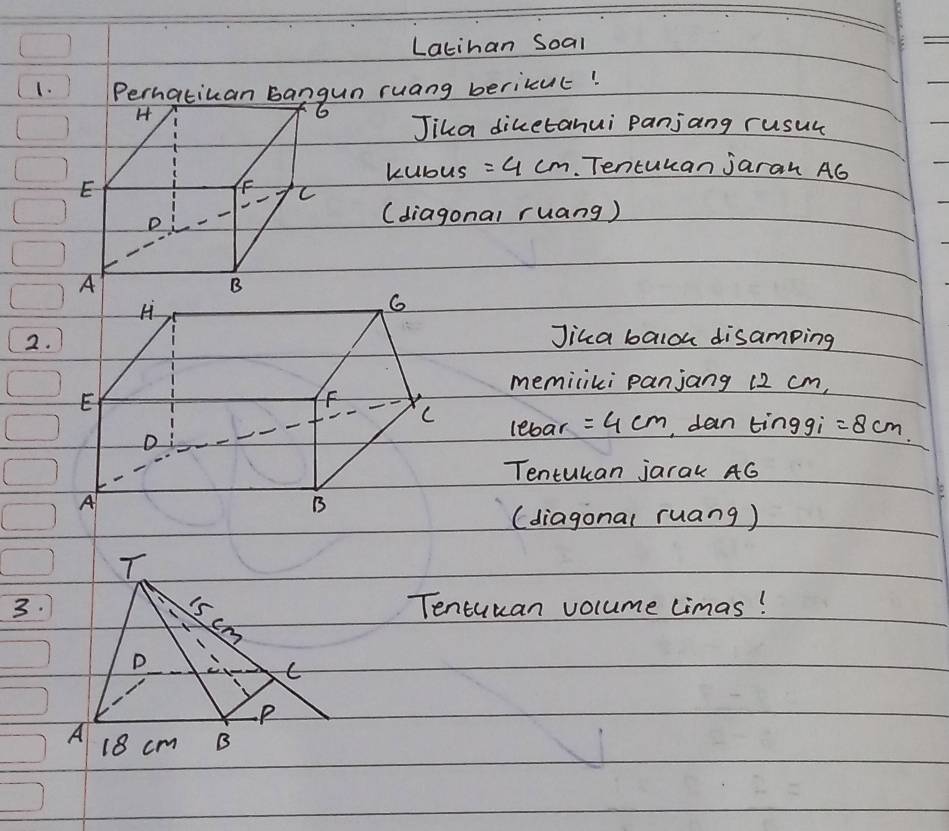 Latihan Soal
1. Perhatikan Bangun ruang berikut!
H G
Jika diketahui Panjang rusuk
kubus = 4 cm. Tentukan jarak AG
E F C
(diagonal ruang)
D
A B
H G
2. Jika balok disamping
memiliki Panjang 12 cm,
E F C
lebar = 4 cm, dan tinggi = 8 cm.
D
Tentukan jarak AG
A B
(diagonal ruang)
T
3. 15 cm Tentukan volume Limas!
D C
P
A 18 cm B